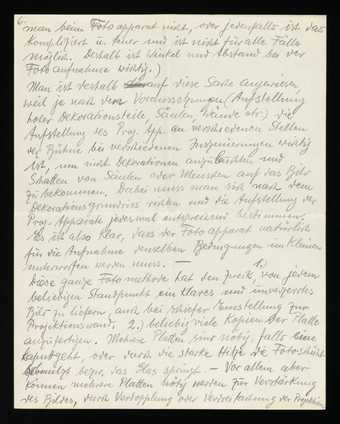 6.
man beim Fotoapparat nicht, oder jedenfalls ist das
kompliziert u. teuer und ist nicht für alle Fälle
möglich. Deshalb ist Winkel und Abstand bei der
Fotoaufnahme wichtig.)
Man ist deshalb auf diese Sache angewiesen,
weil je nach den Voraussetzungen (Aufstellung
hoher Dekorationsteile, Säulen, Wände etc.) die
Aufstellung des Proj. App. an verschiedenen Stellen
der Bühne bei verschiedenen Inszenierungen nötig
ist, um nicht Dekorationen anzuleuchten und
Schatten von Säulen oder Menschen auf das Bild
zu bekommen. Dabei muss man sich nach dem
Dekorationsgrundriss richten und die Aufstellung der
Proj. Apparate jedesmal entsprechend bestimmen.
Es ist also klar, dass der Fotoapparat natürlich
für die Aufnahme denselben Bedingungen im Kleinen
unterworfen werden muss. —
Diese ganze Fotomethode hat den Zweck, 1.) von jedem
beliebigen Standpunkt ein klares und
Bild zu liefern, auch bei schiefer Einstellung zur
Projektionswand. 2.) beliebig viele Kopien der Platte
anzufertigen. Mehrere Platten sind nötig, falls eine
kaputtgeht, oder durch die starke Hitze die Fotoschicht
bezw. das Glas springt. — Vor allem aber
können mehrere Platten nötig werden zur Verstärkung
des Bildes, durch Verdopplung oder Verdreifachung der Projektion